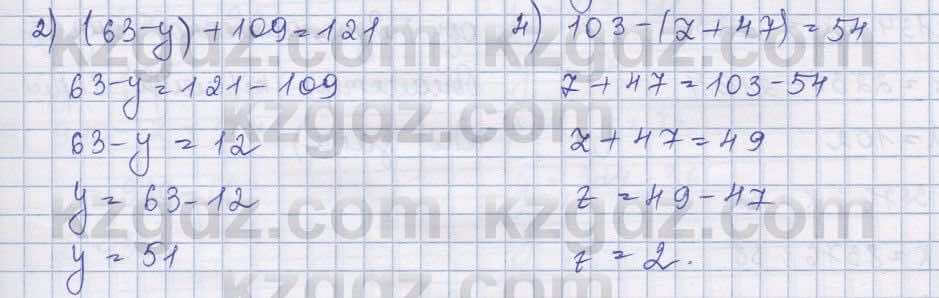 2) (63-y)+109=121
63-y=121-109
63-y=12
y=63-12
y=51
4) 103-(z+47)=54
z+47=103-54
z+47=49
z=49-47
z=2.
kzgdz.com
kzgdz.com
kzgdz.com
kzgdz.com
kzgdz.com